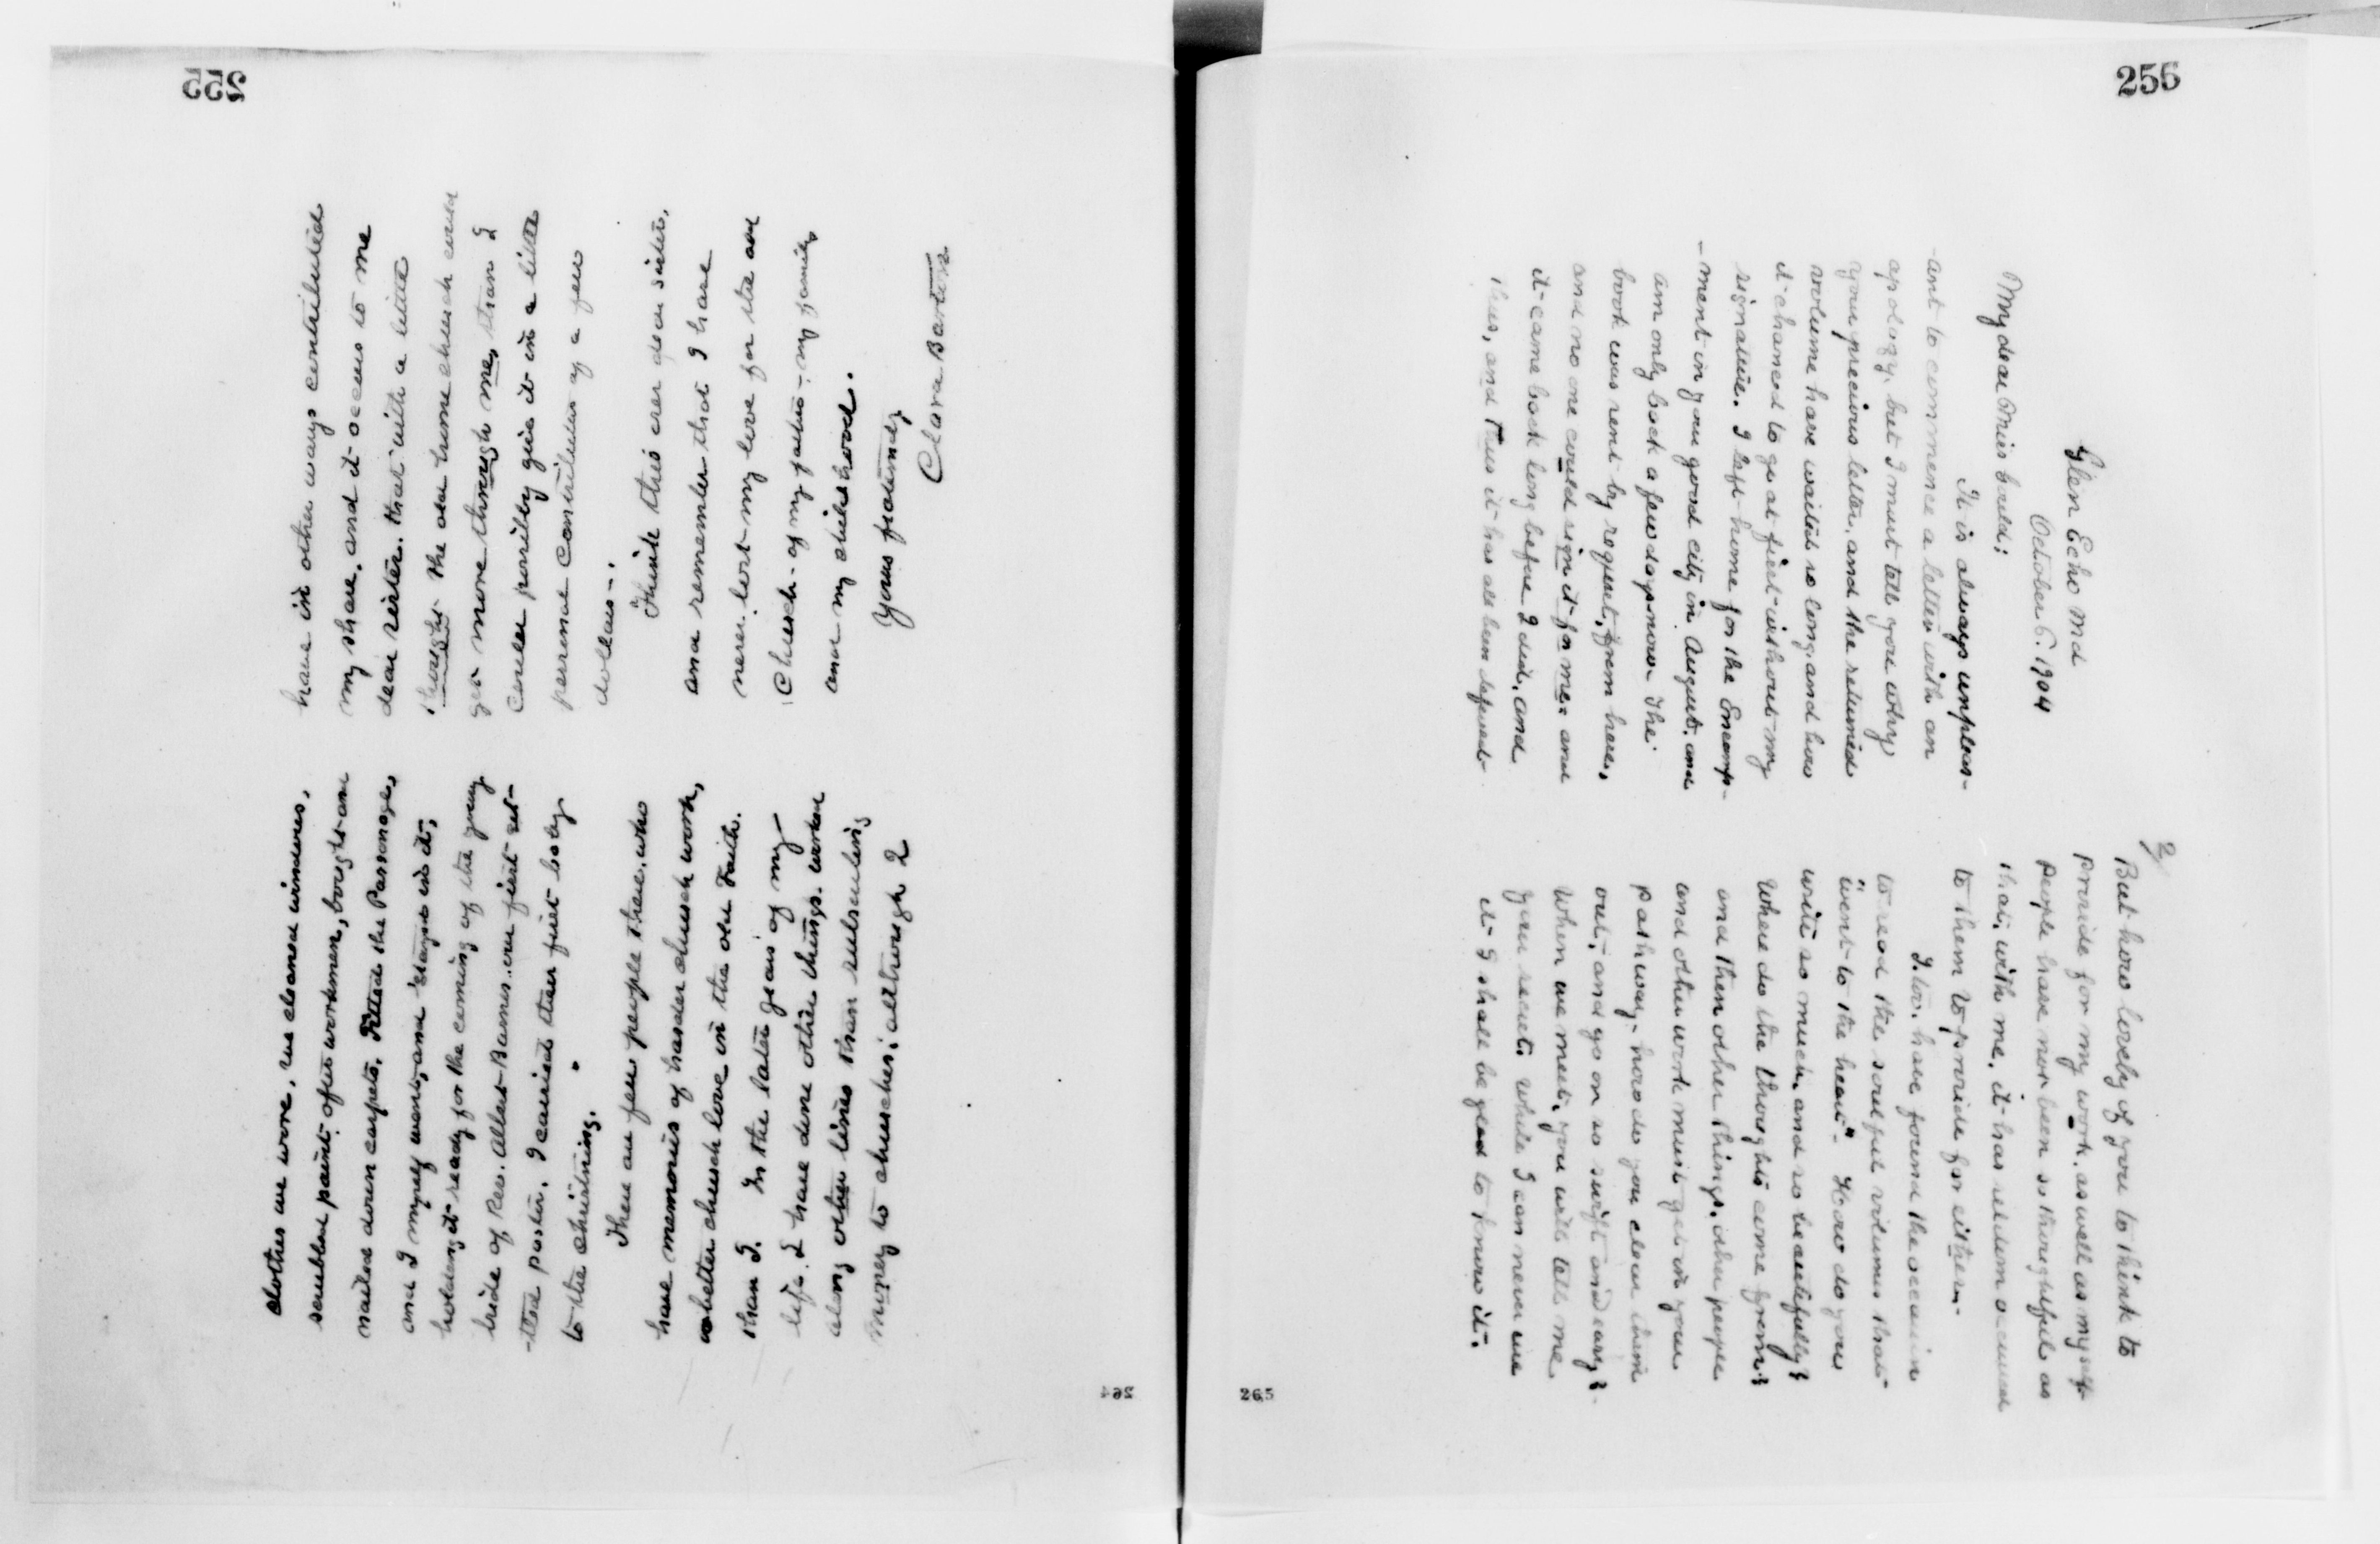 clothes we wore, we cleaned windows,
scrubbed paint after workmen, bought and
nailed down carpets, Fitted the Parsonage,
and I myself went, and stayed in it,
holding it ready for the coming of the young
bride of Rev. Albert Barnes, our first set-
-tled pastor. I carried their first baby
to the christning.
There are few people there, who
have memories of harder church work,
or better church love in the old Faith.
than I. In the later years of my
life I have done other things. worked
along other lines than subscribing
money to churches, although I
have in other ways contributed
my share, and it occurs to me
dear sister, that with a little
thought the old home church could
get more through me, than I
could possibly give it in a little
personal contribution of a few
dollars-.
Think this over dear sister,
and remember that I have
never lost my love for the old
Church- of my father- my family
and my childhood.
Yours fraternally,
Clara Barton
255
264
255
Glen Echo Md
October 6. 1904
My dear Miss
It is always unpleas-
-ant to commence a letter with an
apology, but I must tell you why
your precious letter, and the returned
volume have waited so long, and how
it chanced to go at first without my
signature. I left home for the Encamp-
-ment in your good city in August, and
am only back a few days now. The
book was sent by request, from here,
and no one could sign it for me: and
it came back long before I did, and
thus, and thus it has all been deferred
2/
But how lovely of you to think to
provide for my work, as well as myself
people have not been so thoughtful as
that, with me, it has seldom occurred
to them to provide for either.-
I, too, have found the occasion
to read the soulful volumes that
"went to the heart". How do you
write so much, and so beautifully?
Where do the thoughts come from?
and then other things, other people
and other work must get in your
pathway- how do you clear them
out, and go on so swift and easy?
When we meet, you will tell me
your secret. While I can never use
it I shall be glad to know it.
265